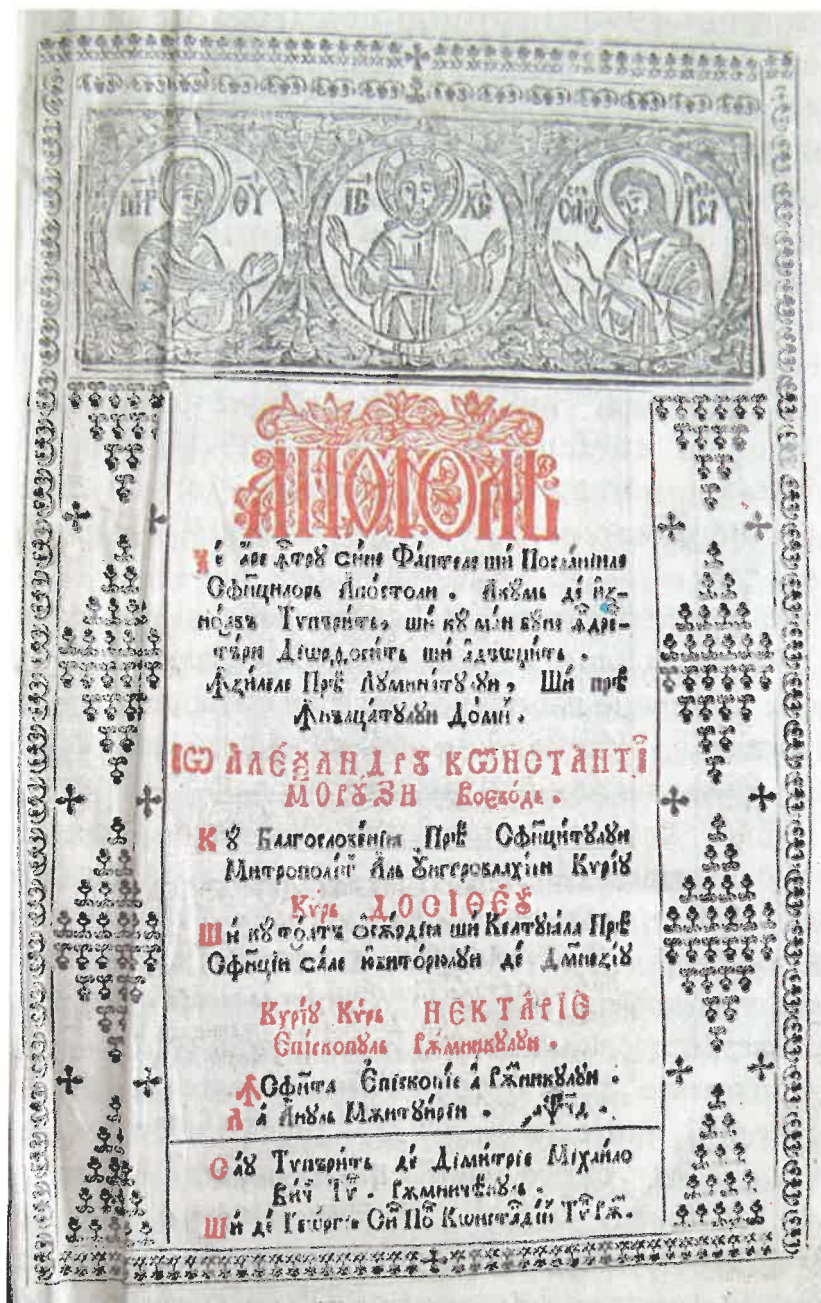 МР ѲУ ІС ХС
АПОСТОЛЬ
Че аре ꙟтру сине Фаптеле ши Посланїиле
Сфинцилорь Апостоли. Акумь де
Тvпъритъ, ши кꙋ май бꙋне ꙟдре-
птъри Дїѡрѳосить ши адъѡцить.
Ꙟзилеле Прѣ Луминатꙋлꙋи, Ши прѣ
Ꙟнълцатꙋлꙋи Домн.
ІѠ АЛЕѮАНДРꙊ КѠНСТАНТІ
МОРꙊЗИ Воевода.
Кꙋ Благословенїѧ Прѣ Сфинцитꙋлꙋи
Митрополит Аль Ꙋнгровлахїеи Кvрїꙋ
Кvрь ДОСІѲЕꙊ
Ши кꙋ тоатъ ѡсѫрдїѧ ши Келтꙋѧла Прѣ
Сфинцїи сале юбиторюлꙋи де Дмнезꙋ
Кvрїꙋ Кvрь НЕКТАРІЕ
Епіскопꙋль Рѫмникꙋлꙋи.
Ꙟ Сфита Епіскопїе а Рѫмникꙋлꙋи.
Ла Анꙋль Мѫнтꙋирїи. ҂аѱчд.
Сау Тvпърить де Димитрїе Міхаило
вич Тv. Рѫмничѣнꙋль.
Ши де Геѡргїе Сн По Кѡнстадїн Тv Рѫ.